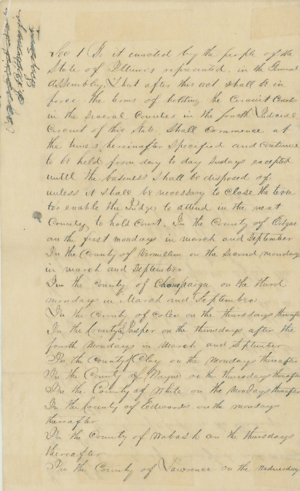 Sec 1 Be it enacted by the people of the
State of Illinois represented in the General
Assembly, That after this act shall be in
force the terms of holding the Circuit Courts
in the several Counties in the fourth Judicial
Circuit of this State, Shall Commence at
the times hereinafter Specified and Continue
to be held from day to day Sundays excepted
untill the business Shall be disposed of
unless it shall be necessary to Close the
to enable the Judge to attend in the next
County, to hold Court. In the County of
on the first mondays in march and September
In the County of Hamilton on the second mondays
in march and September
In the County of Champaign on the third
mondays in March and September
In the County of Coles on the thursdays
In the County of Jasper on the thursdays after the
fourth Mondays in March and September
In the County of Clay on the Mondays thereafter
In the County of Wayne on the thursdays thereafter
In the County of White on the Mondays thereafter
In the County of Edwards on the mondays
thereafter
In the County of Wabash on the thursdays
thereafter
In the County of Lawrence on the Wednesday